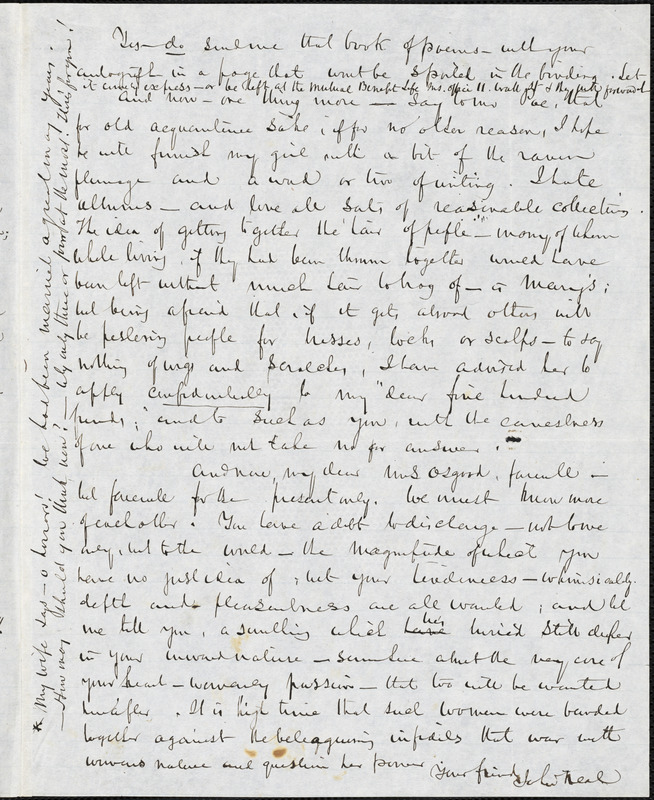 Yes – do send me that book of poems – with your
autograph in a page that wont be spoiled in the binding. Let
it come express – or be left at the Mutual Benefit Life Ins. office 11. Wall St & they will forward
And now – one thing more – Say to Mr that
for old acquaintance sake, if for no other reason, I hope
he will furnish my girl with a bit of the raven
plumage and a word or two of writing. I hate
albums – and love all sorts of reasonable collections.
The idea of getting together the hair of people – many of whom
while living if they had been thrown together would have
been left without much hair to brag of – is Mary's;
but being afraid that if it gets abroad others will
be pestering people for tresses, locks or scalps – to say
nothing of wigs and scratches, I have advised her to
apply confidentially to my "dear five hundred
friends;" and to such as you, with the earnestness
of one who will not take no for answer.
And now, my dear Mrs Osgood, farewell –
but farewell for the present only. We must know more
of each other. You have a debt to discharge – not to me
only, but to the world – the magnitude of which you
have no just idea of; but your tenderness – whimsically
depth and pleasantness are all wanted; and let
me tell you, a something which lies buried still deeper
in your inward nature – somewhere about the very core of
your heart – womanly passion – that too will be wanted
hereafter. It is high time that such women were banded
together against the beleaguering infidels that war with
womans nature and question her power
Your friend John Neal
* My wife says – o horrors! we have been married a great many years.
– How many should you think, now? – Why only three or four at the most! there for you!